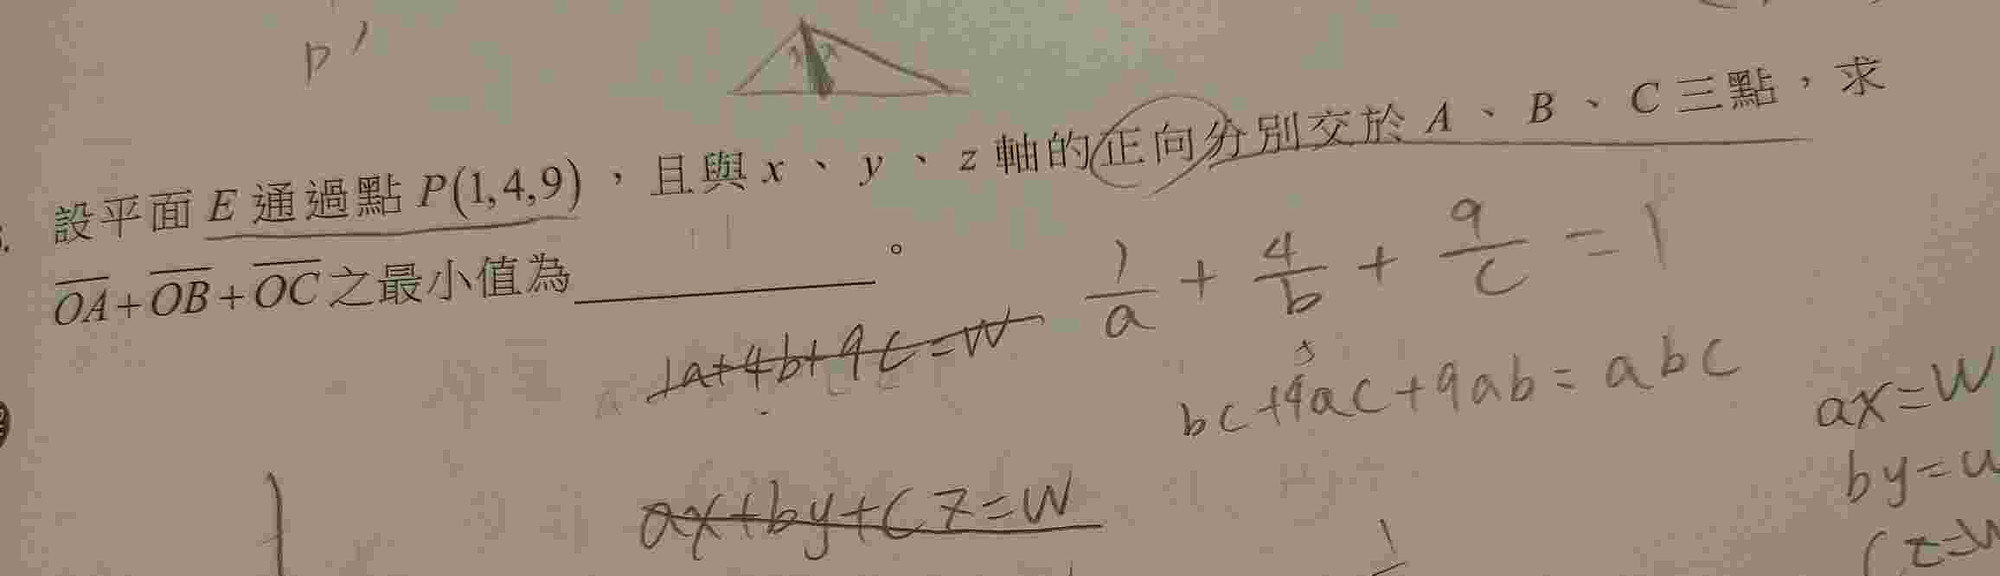 P'
設平面 E 通過點 P(1,4,9)，且與 x、y、z 軸的正向分別交於 A、B、C 三點，求
OA+OB+OC 之最小值為 ________。
1/a + 4/b + 9/c = 1
1a+4b+9c=W
bc+4ac+9ab=abc
ax=W
by=
ax+by+cz=W